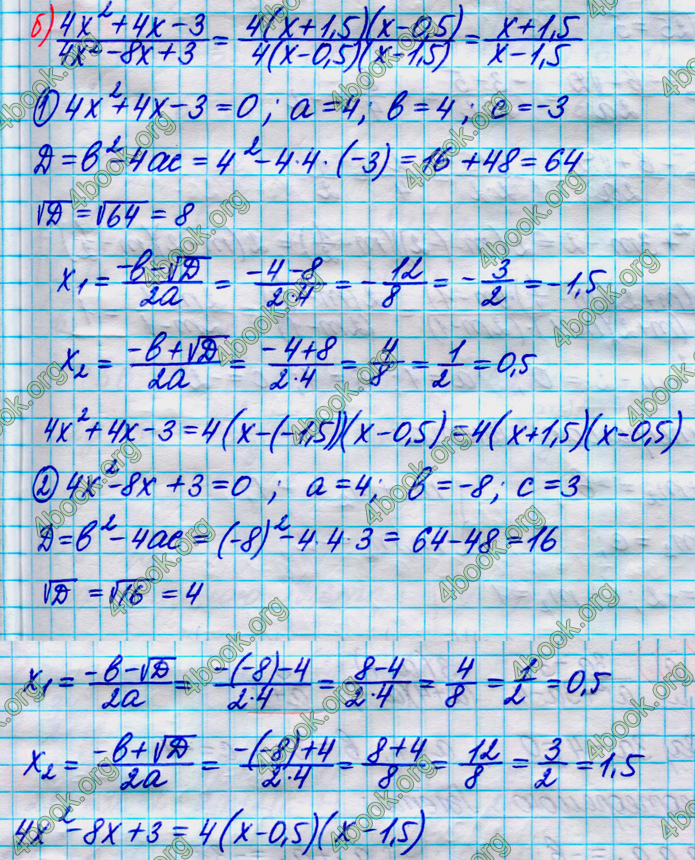 б) (4x²+4x-3)/(4x²-8x+3) = (4(x+1,5)(x-0,5))/(4(x-0,5)(x-1,5)) = (x+1,5)/(x-1,5)
① 4x²+4x-3=0; a=4; b=4; c=-3
D=b²-4ac=4²-4·4·(-3)=16+48=64
√D=√64=8
x₁=(-b-√D)/(2a)=(-4-8)/(2·4)=-12/8=-3/2=-1,5
x₂=(-b+√D)/(2a)=(-4+8)/(2·4)=4/8=1/2=0,5
4x²+4x-3=4(x-(-1,5))(x-0,5)=4(x+1,5)(x-0,5)
② 4x²-8x+3=0; a=4; b=-8; c=3
D=b²-4ac=(-8)²-4·4·3=64-48=16
√D=√16=4
x₁=(-b-√D)/(2a)=(-(-8)-4)/(2·4)=(8-4)/(2·4)=4/8=1/2=0,5
x₂=(-b+√D)/(2a)=(-(-8)+4)/(2·4)=(8+4)/8=12/8=3/2=1,5
4x²-8x+3=4(x-0,5)(x-1,5)
4book.org